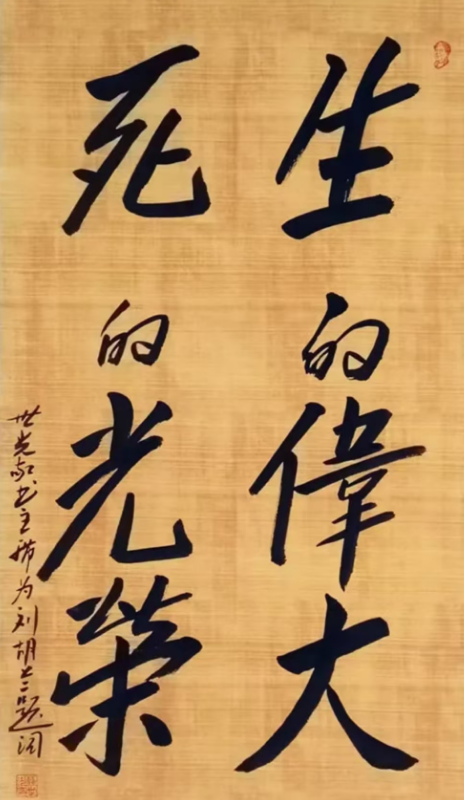 生的偉大
死的光榮
世光敬书主席为刘胡兰题词